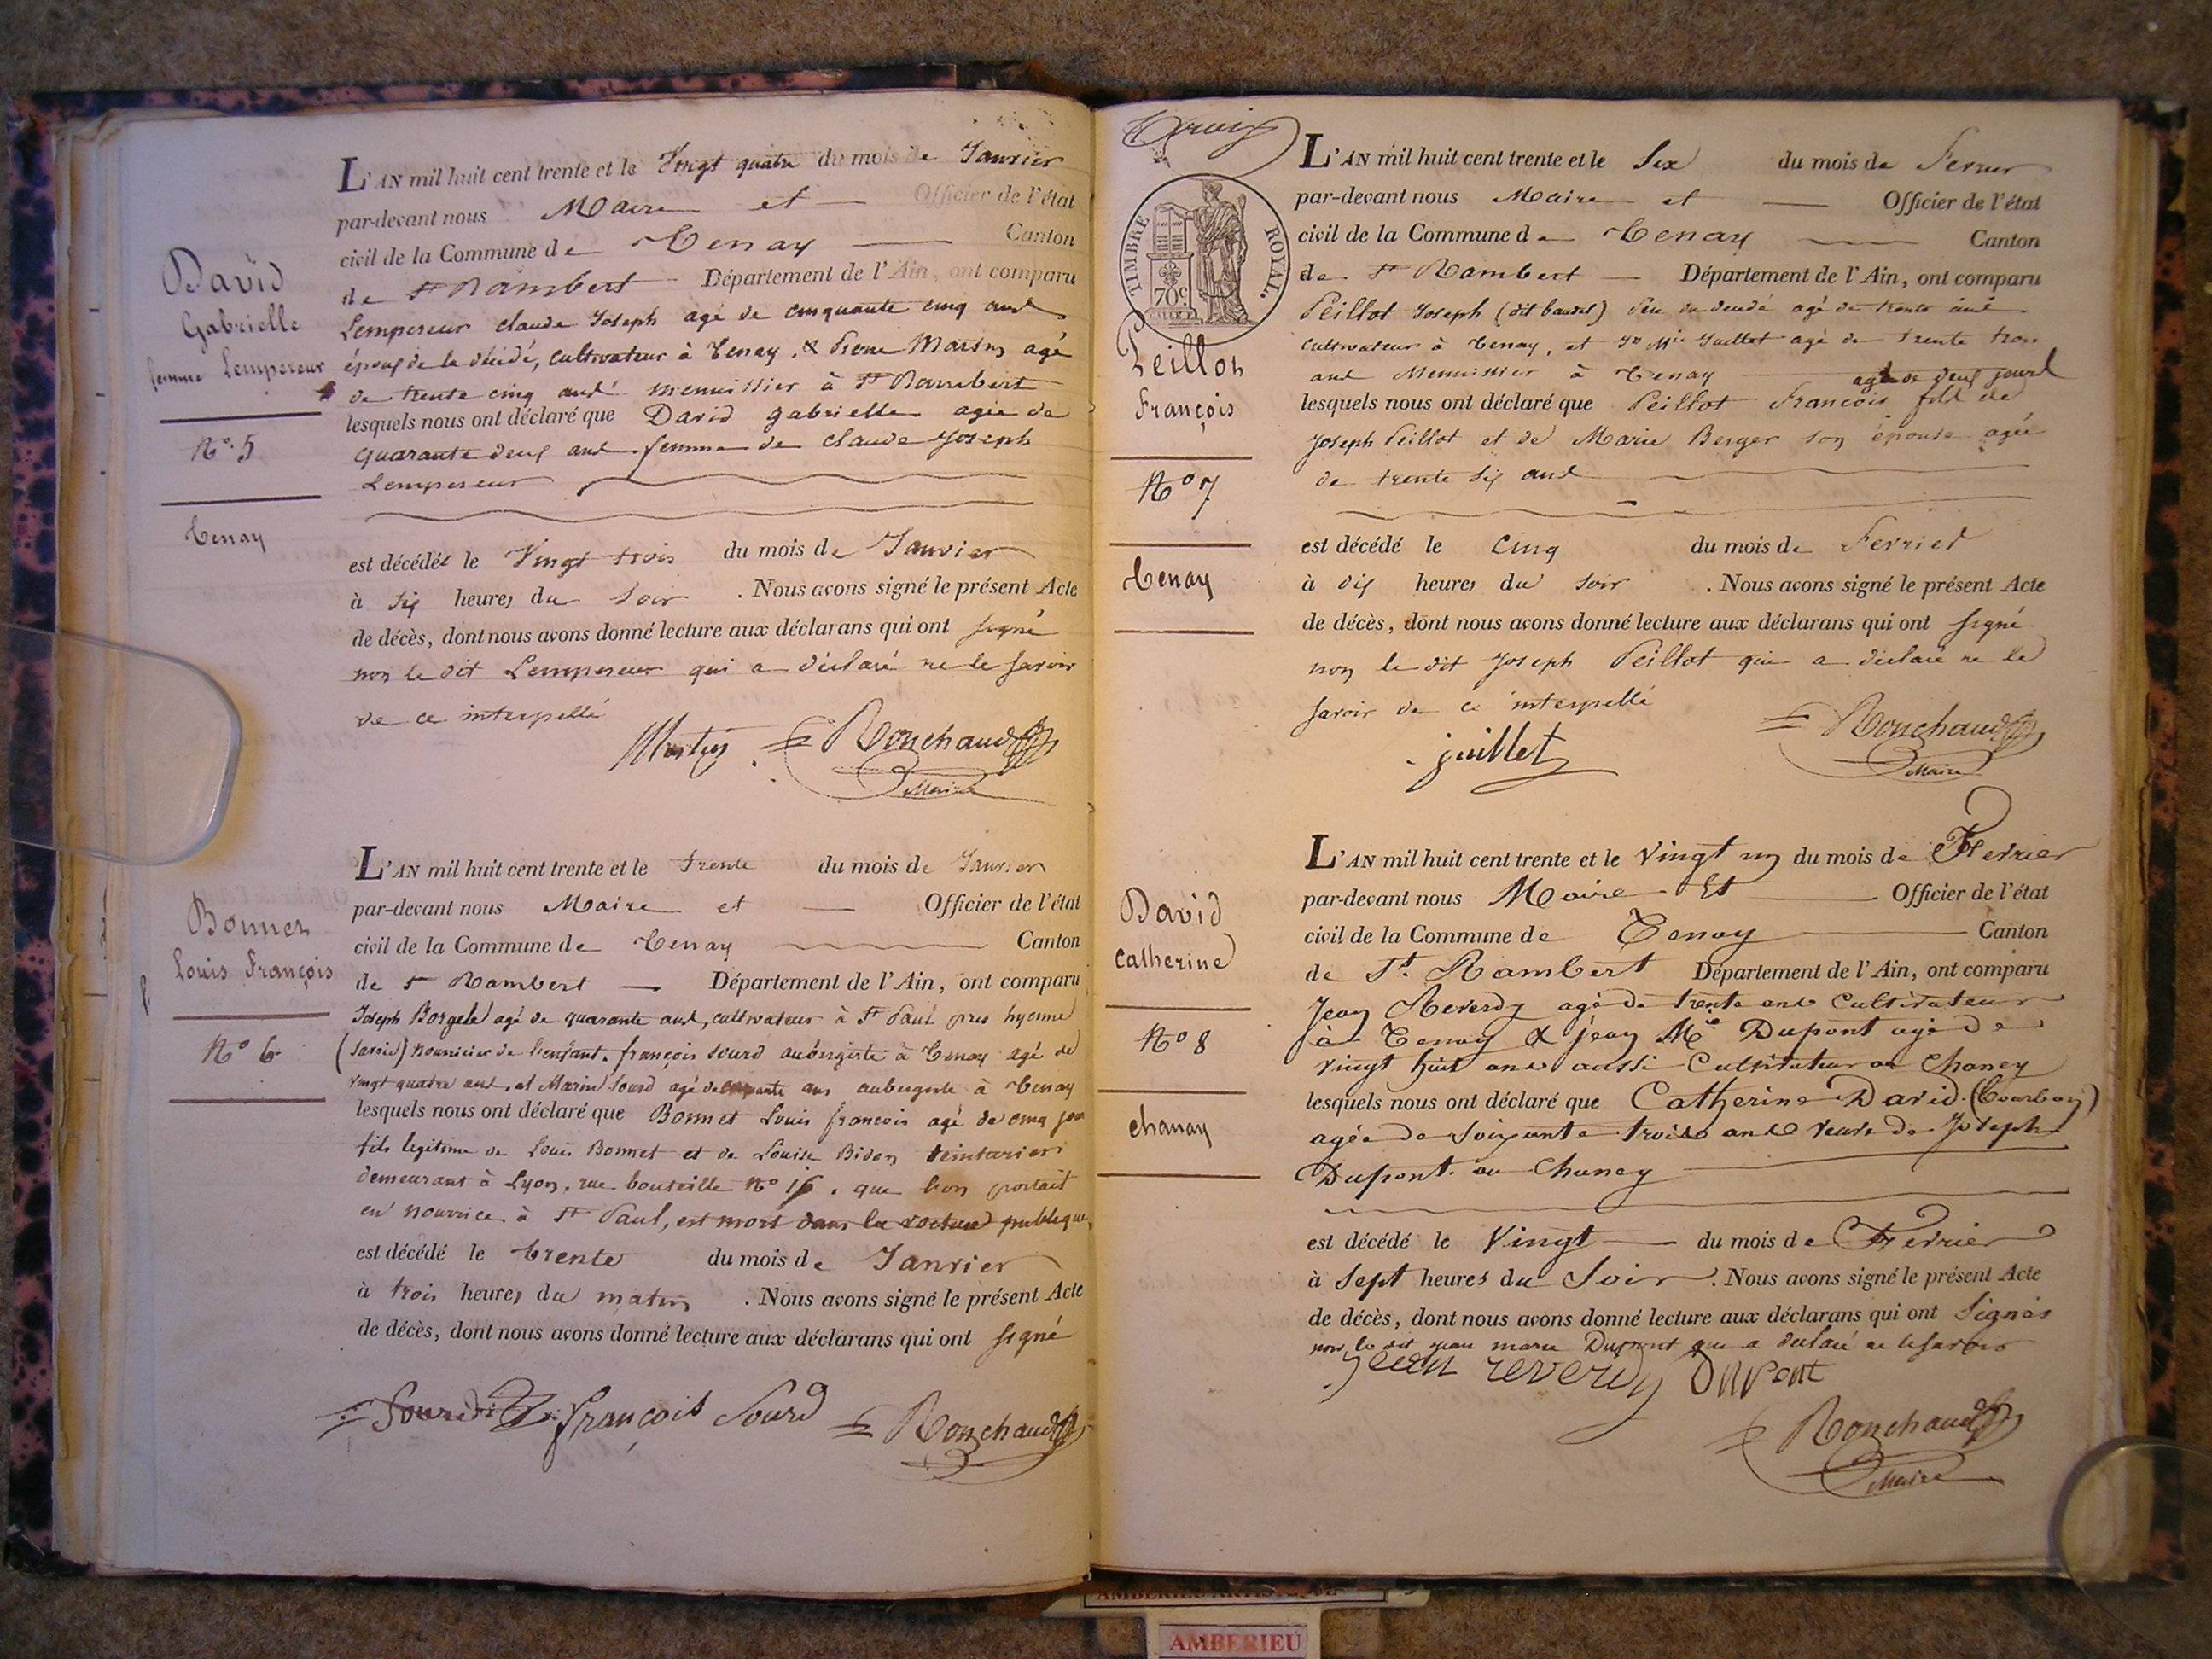 David
Gabrielle
femme Lempereur
N°. 5
Tenay
L'AN mil huit cent trente et le Vingt quatre du mois de Janvier
par-devant nous Maire et — Officier de l'état
civil de la Commune de Tenay — Canton
de St Rambert — Département de l'Ain, ont comparu
Lempereur claude Joseph agé de cinquante cinq ans
époux de la décédé, cultivateur à Tenay, & Pierre Martin agé
de trente cinq ans menuissier à St Rambert
lesquels nous ont déclaré que David gabrielle agée de
quarante deux ans femme de claude Joseph
Lempereur
est décédée le Vingt trois du mois de Janvier
à six heures du soir . Nous avons signé le présent Acte
de décès, dont nous avons donné lecture aux déclarans qui ont signé
non le dit Lempereur qui a déclaré ne le savoir
de ce interpellé
Martin Ronchaud
Maire
Bonnet
Louis François
N° 6
L'AN mil huit cent trente et le trente du mois de Janvier
par-devant nous Maire et — Officier de l'état
civil de la Commune de Tenay Canton
de St Rambert — Département de l'Ain, ont comparu
Joseph Borgele agé de quarante ans, cultivateur à St Paul pres hyenne
(savoie) nourricier de l'enfant. françois sourd aubergiste à Tenay agé de
vingt quatre ans, et Marin Sourd agé de ans aubergiste à Tenay
lesquels nous ont déclaré que Bonnet Louis françois agé de cinq jour
fils legitime de Louis Bonnet et de Louise Bidon teinturier
demeurant à Lyon, rue bouteille N° 16, que l'on portait
en nourrice à St Paul, est mort dans la voiture publique,
est décédé le trente du mois de Janvier
à trois heures du matin . Nous avons signé le présent Acte
de décès, dont nous avons donné lecture aux déclarans qui ont signé
Sourd françois Sourd Ronchaud
TIMBRE ROYAL.
70c
Peillon
François
N° 7
Tenay
L'AN mil huit cent trente et le Six du mois de Fevrier
par-devant nous Maire et — Officier de l'état
civil de la Commune de Tenay — Canton
de St Rambert — Département de l'Ain, ont comparu
Peillot Joseph (dit baudet) Père du décédé agé de trente ans
cultivateur à Tenay, et Jh Mie Juillet agé de trente trois
ans Menuissier à Tenay agé de deux jours
lesquels nous ont déclaré que Peillot François fils de
Joseph Peillot et de Marie Berger son épouse agée
de trente six ans
est décédé le Cinq du mois de Fevrier
à dix heures du soir . Nous avons signé le présent Acte
de décès, dont nous avons donné lecture aux déclarans qui ont signé
non le dit Joseph Peillot qui a déclaré ne le
savoir de ce interpellé
juillet Ronchaud
Maire
David
Catherine
N° 8
chanay
L'AN mil huit cent trente et le Vingt un du mois de Fevrier
par-devant nous Maire Et — Officier de l'état
civil de la Commune de Tenay — Canton
de St. Rambert Département de l'Ain, ont comparu
Jean Reverdy agé de trente ans Cultivateur
à Tenay & Jean Mie Dupont agé de
vingt huit ans aussi Cultivateur au Chaney
lesquels nous ont déclaré que Catherine David (Courbon)
agée de Soixante trois ans veuve de Joseph
Dupont. au Chaney
est décédé le Vingt — du mois de Fevrier
à Sept heures du Soir . Nous avons signé le présent Acte
de décès, dont nous avons donné lecture aux déclarans qui ont Signés
non le dit jean marie Dupont qui a déclaré ne le savoir
jean reverdy Dupont
Ronchaud
Maire
AMBERIEU